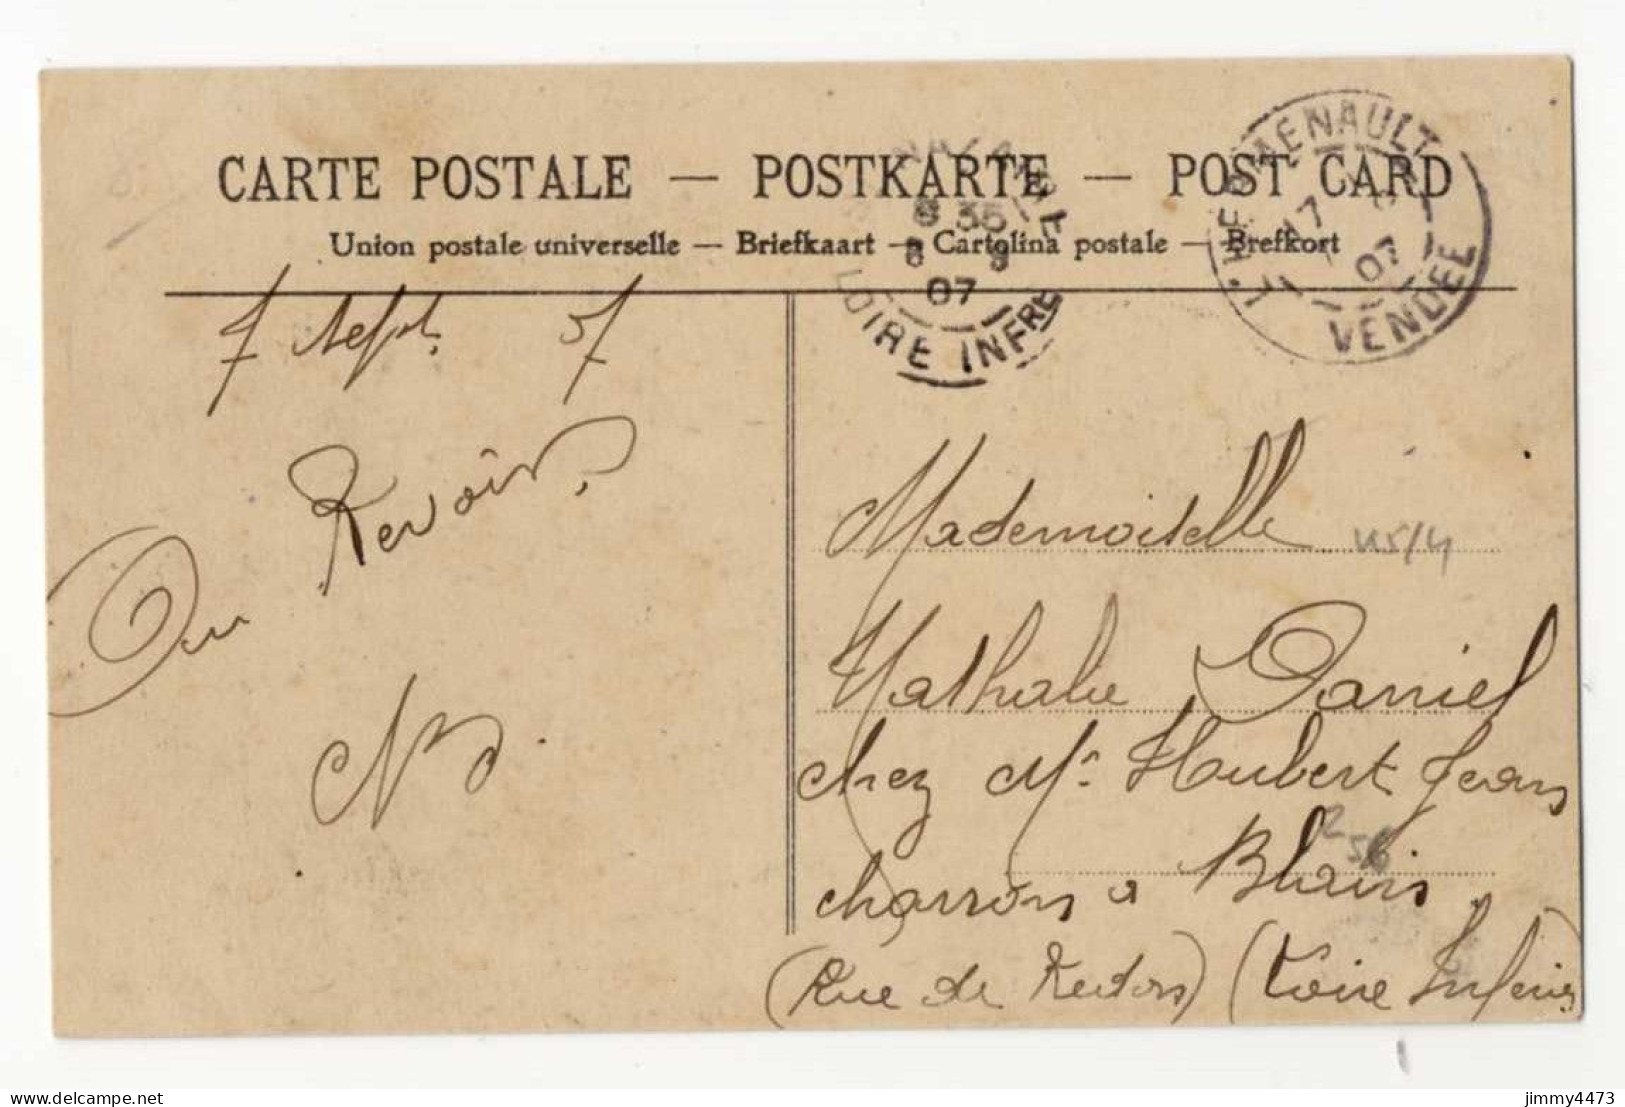 CARTE POSTALE — POSTKARTE — POST CARD
Union postale universelle — Briefkaart — Cartolina postale — Brefkort
NAZAIRE
8 35
8 9
07
LOIRE INFRE
L'HERMENAULT
17
07
VENDÉE
7 Sept. 07
Au Revoir.
Mademoiselle
Nathalie Daniel
chez Mr Hubert Jean
charron a Blain.
(Rue de Redon) (Loire Inférie
delcampe.net
jimmy4473